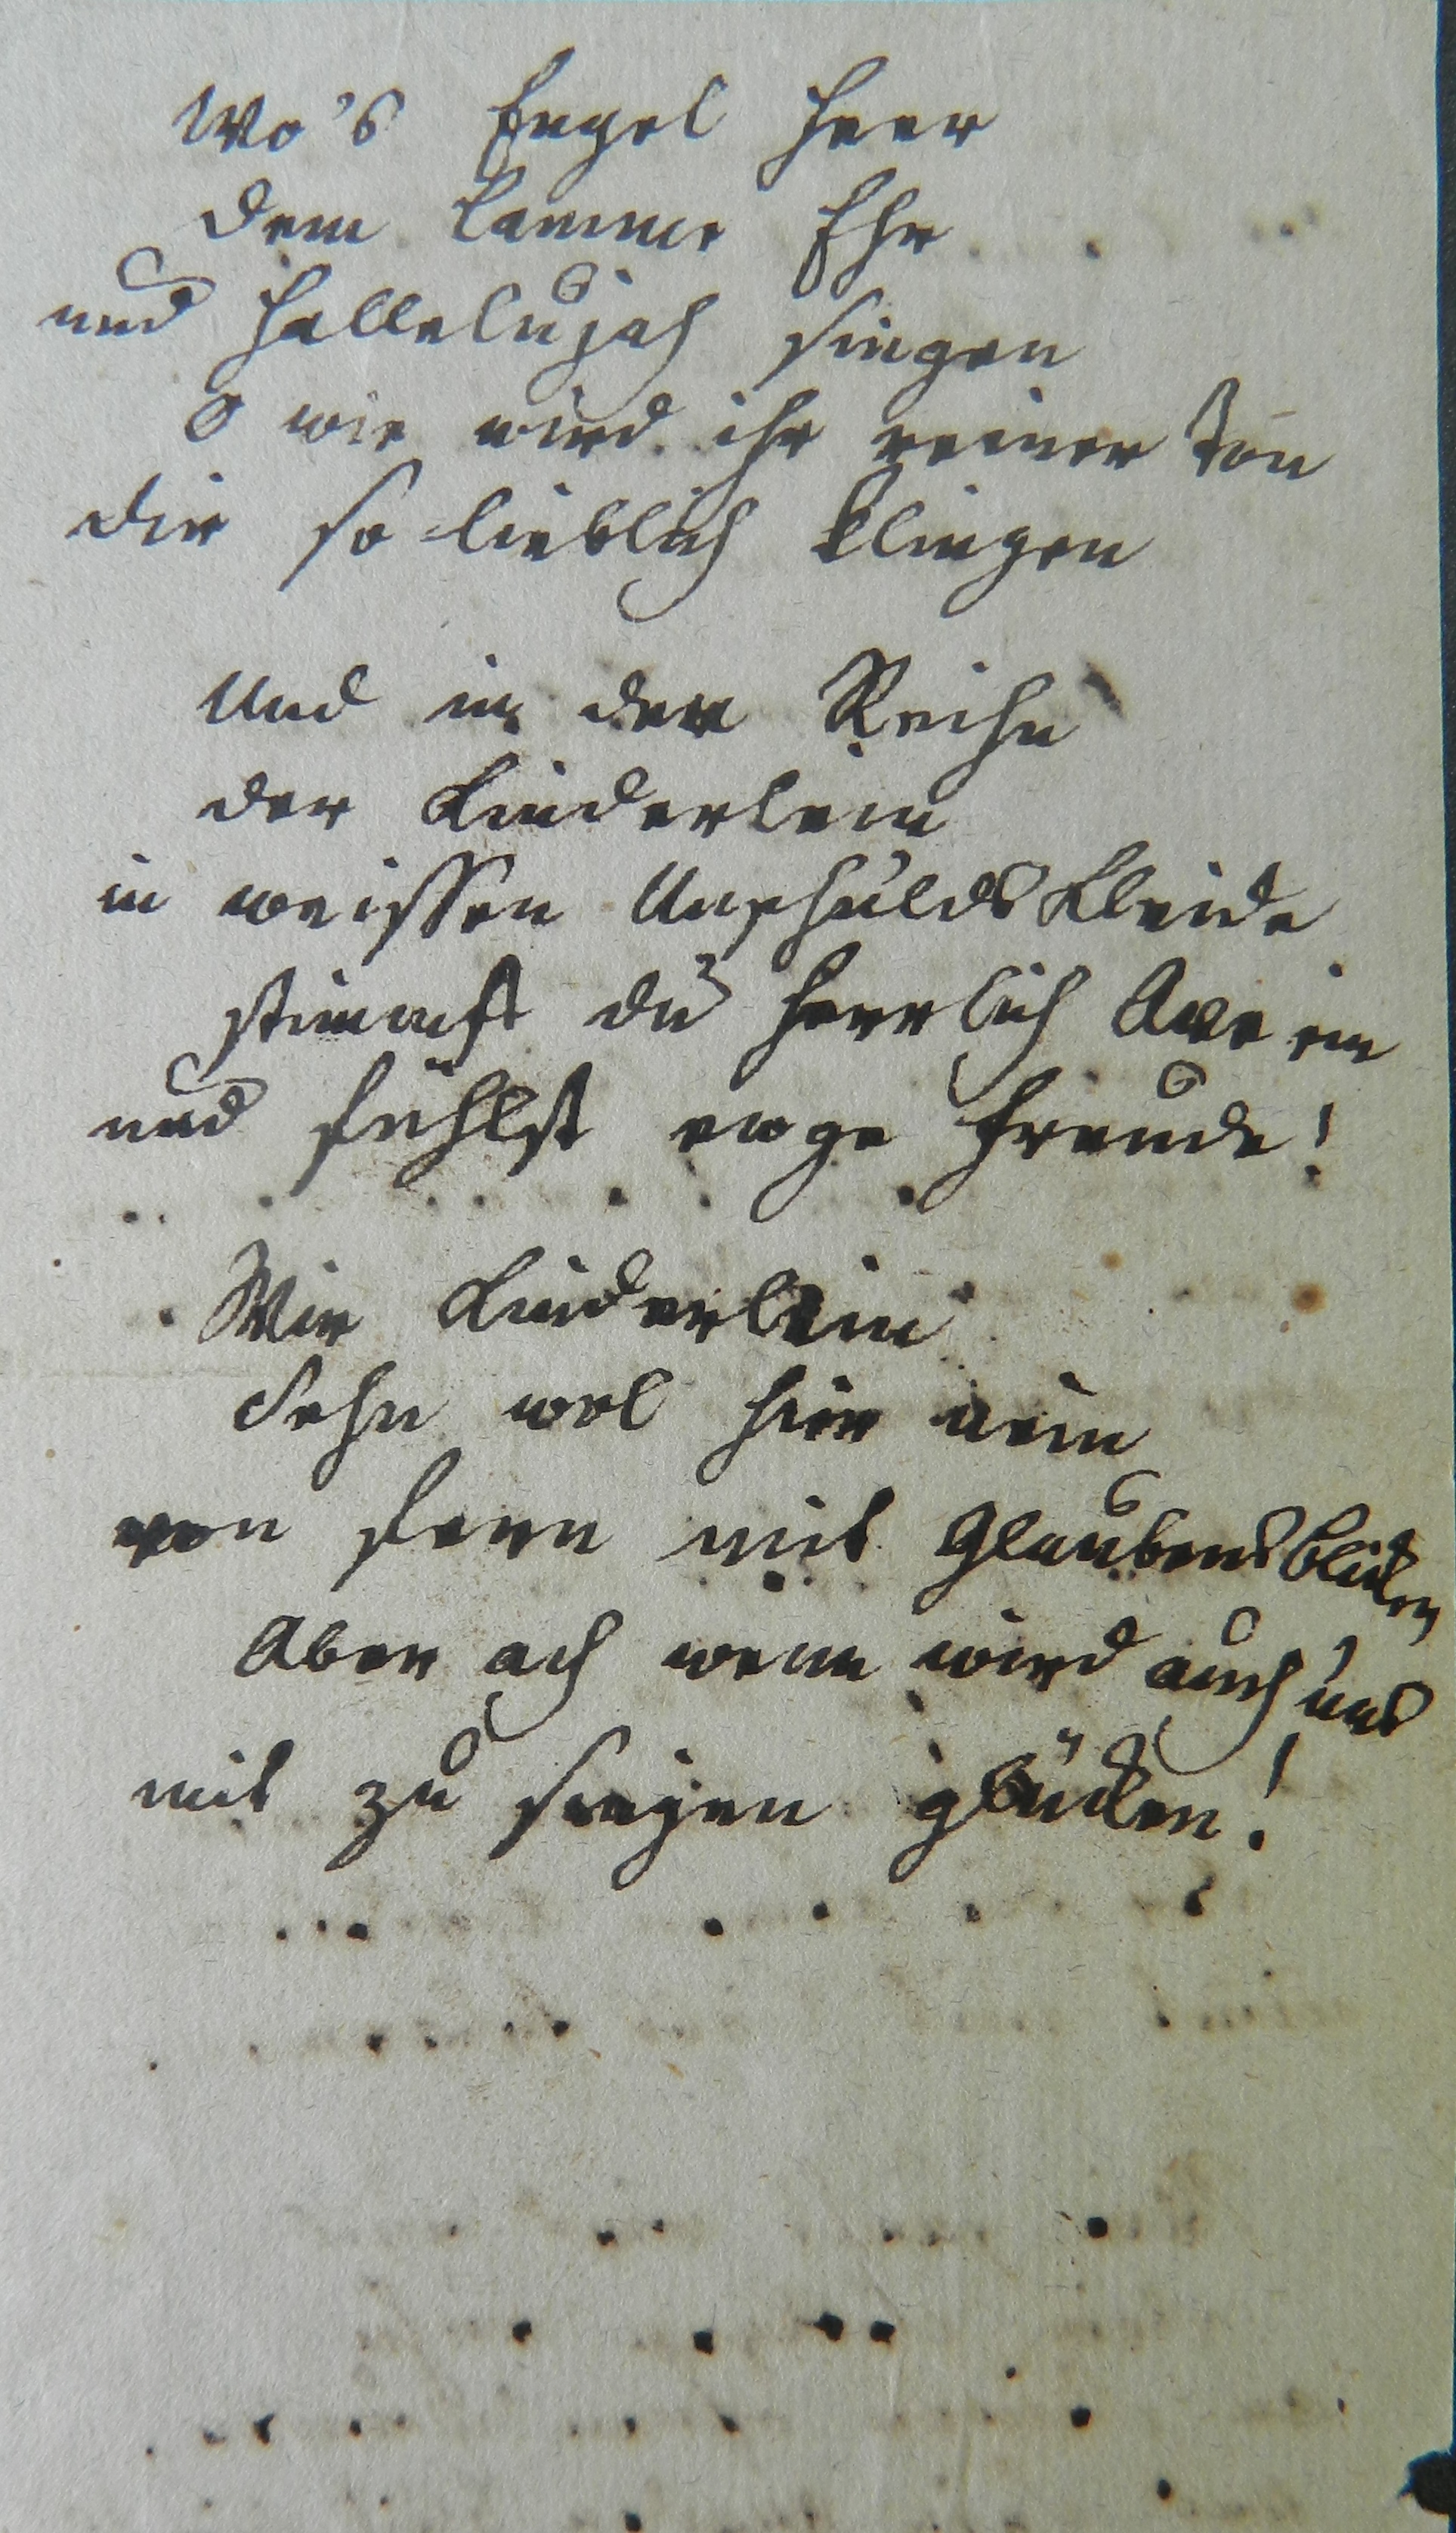 Wo's Engel Heer
dem Lamme Ehr
und Hallelujah singen
O wie wird ihr reiner Ton
dir so lieblich klingen
Und in der Reihn
der Kinderlein
in weissen Unschulds Kleide
stimmst du herrlich Ave ein
und fühlst ewge Freude!
Wir Kinderlein
Sehn wol hier nein
von fern mit Glaubensblicken
Aber ach wenn wird auch uns
mit zu singen glücken!